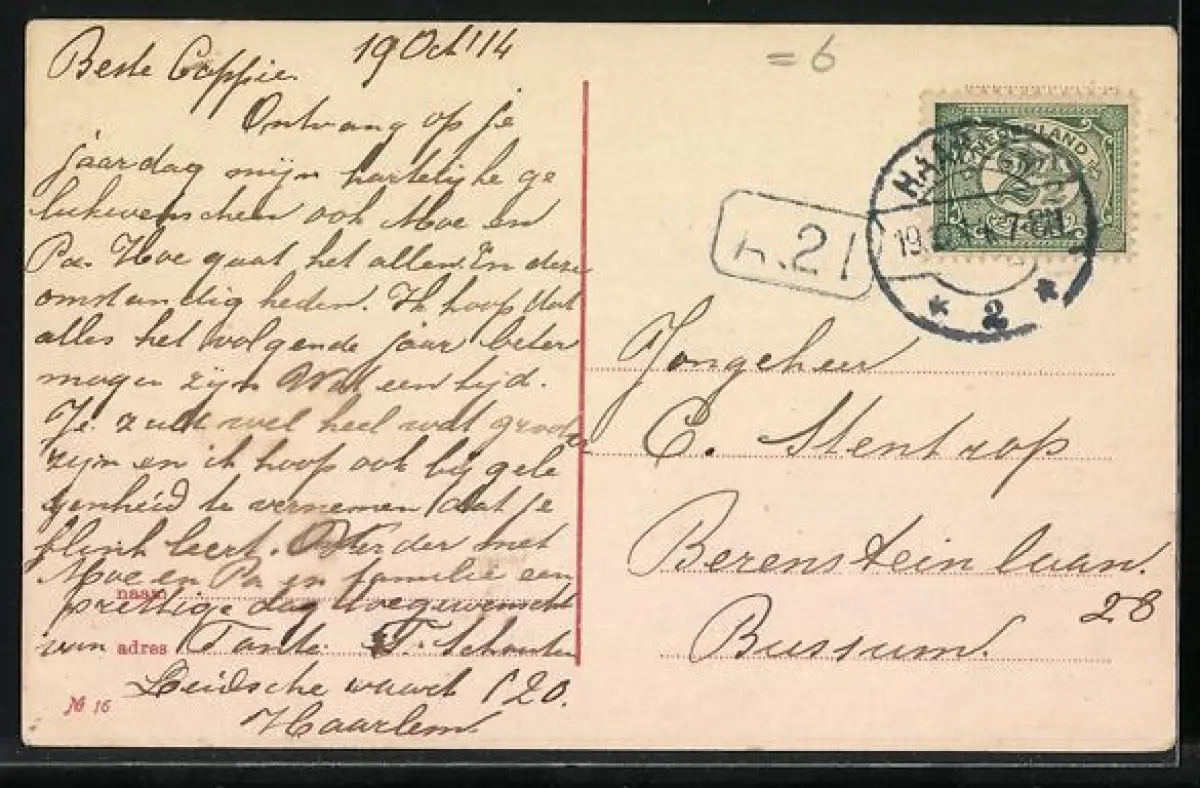 19 Oct '14
Beste Coppie.
Ontvang op je
jaardag mijn hartelijke ge
lukwenschen ook Moe en
Pa. Hoe gaat het allen In deze
omstandigheden. Ik hoop dat
alles het volgende jaar beter
mogen zijn Wat een tijd.
Je zult wel heel wat groot
zijn en ik hoop ook bij gele
genheid te vernemen dat je
flink leert. Verder met
Moe en Pa en familie een
naam
prettige dag toegewenscht
van Tante. T. Schouten
adres
Leidsche vaart 120.
Haarlem
№ 16
=6
NEDERLAND
HAA
19. 14 7-8N
2
.21
Jongeheer
C. Stentrop
Berensteinlaan.
28
Bussum.